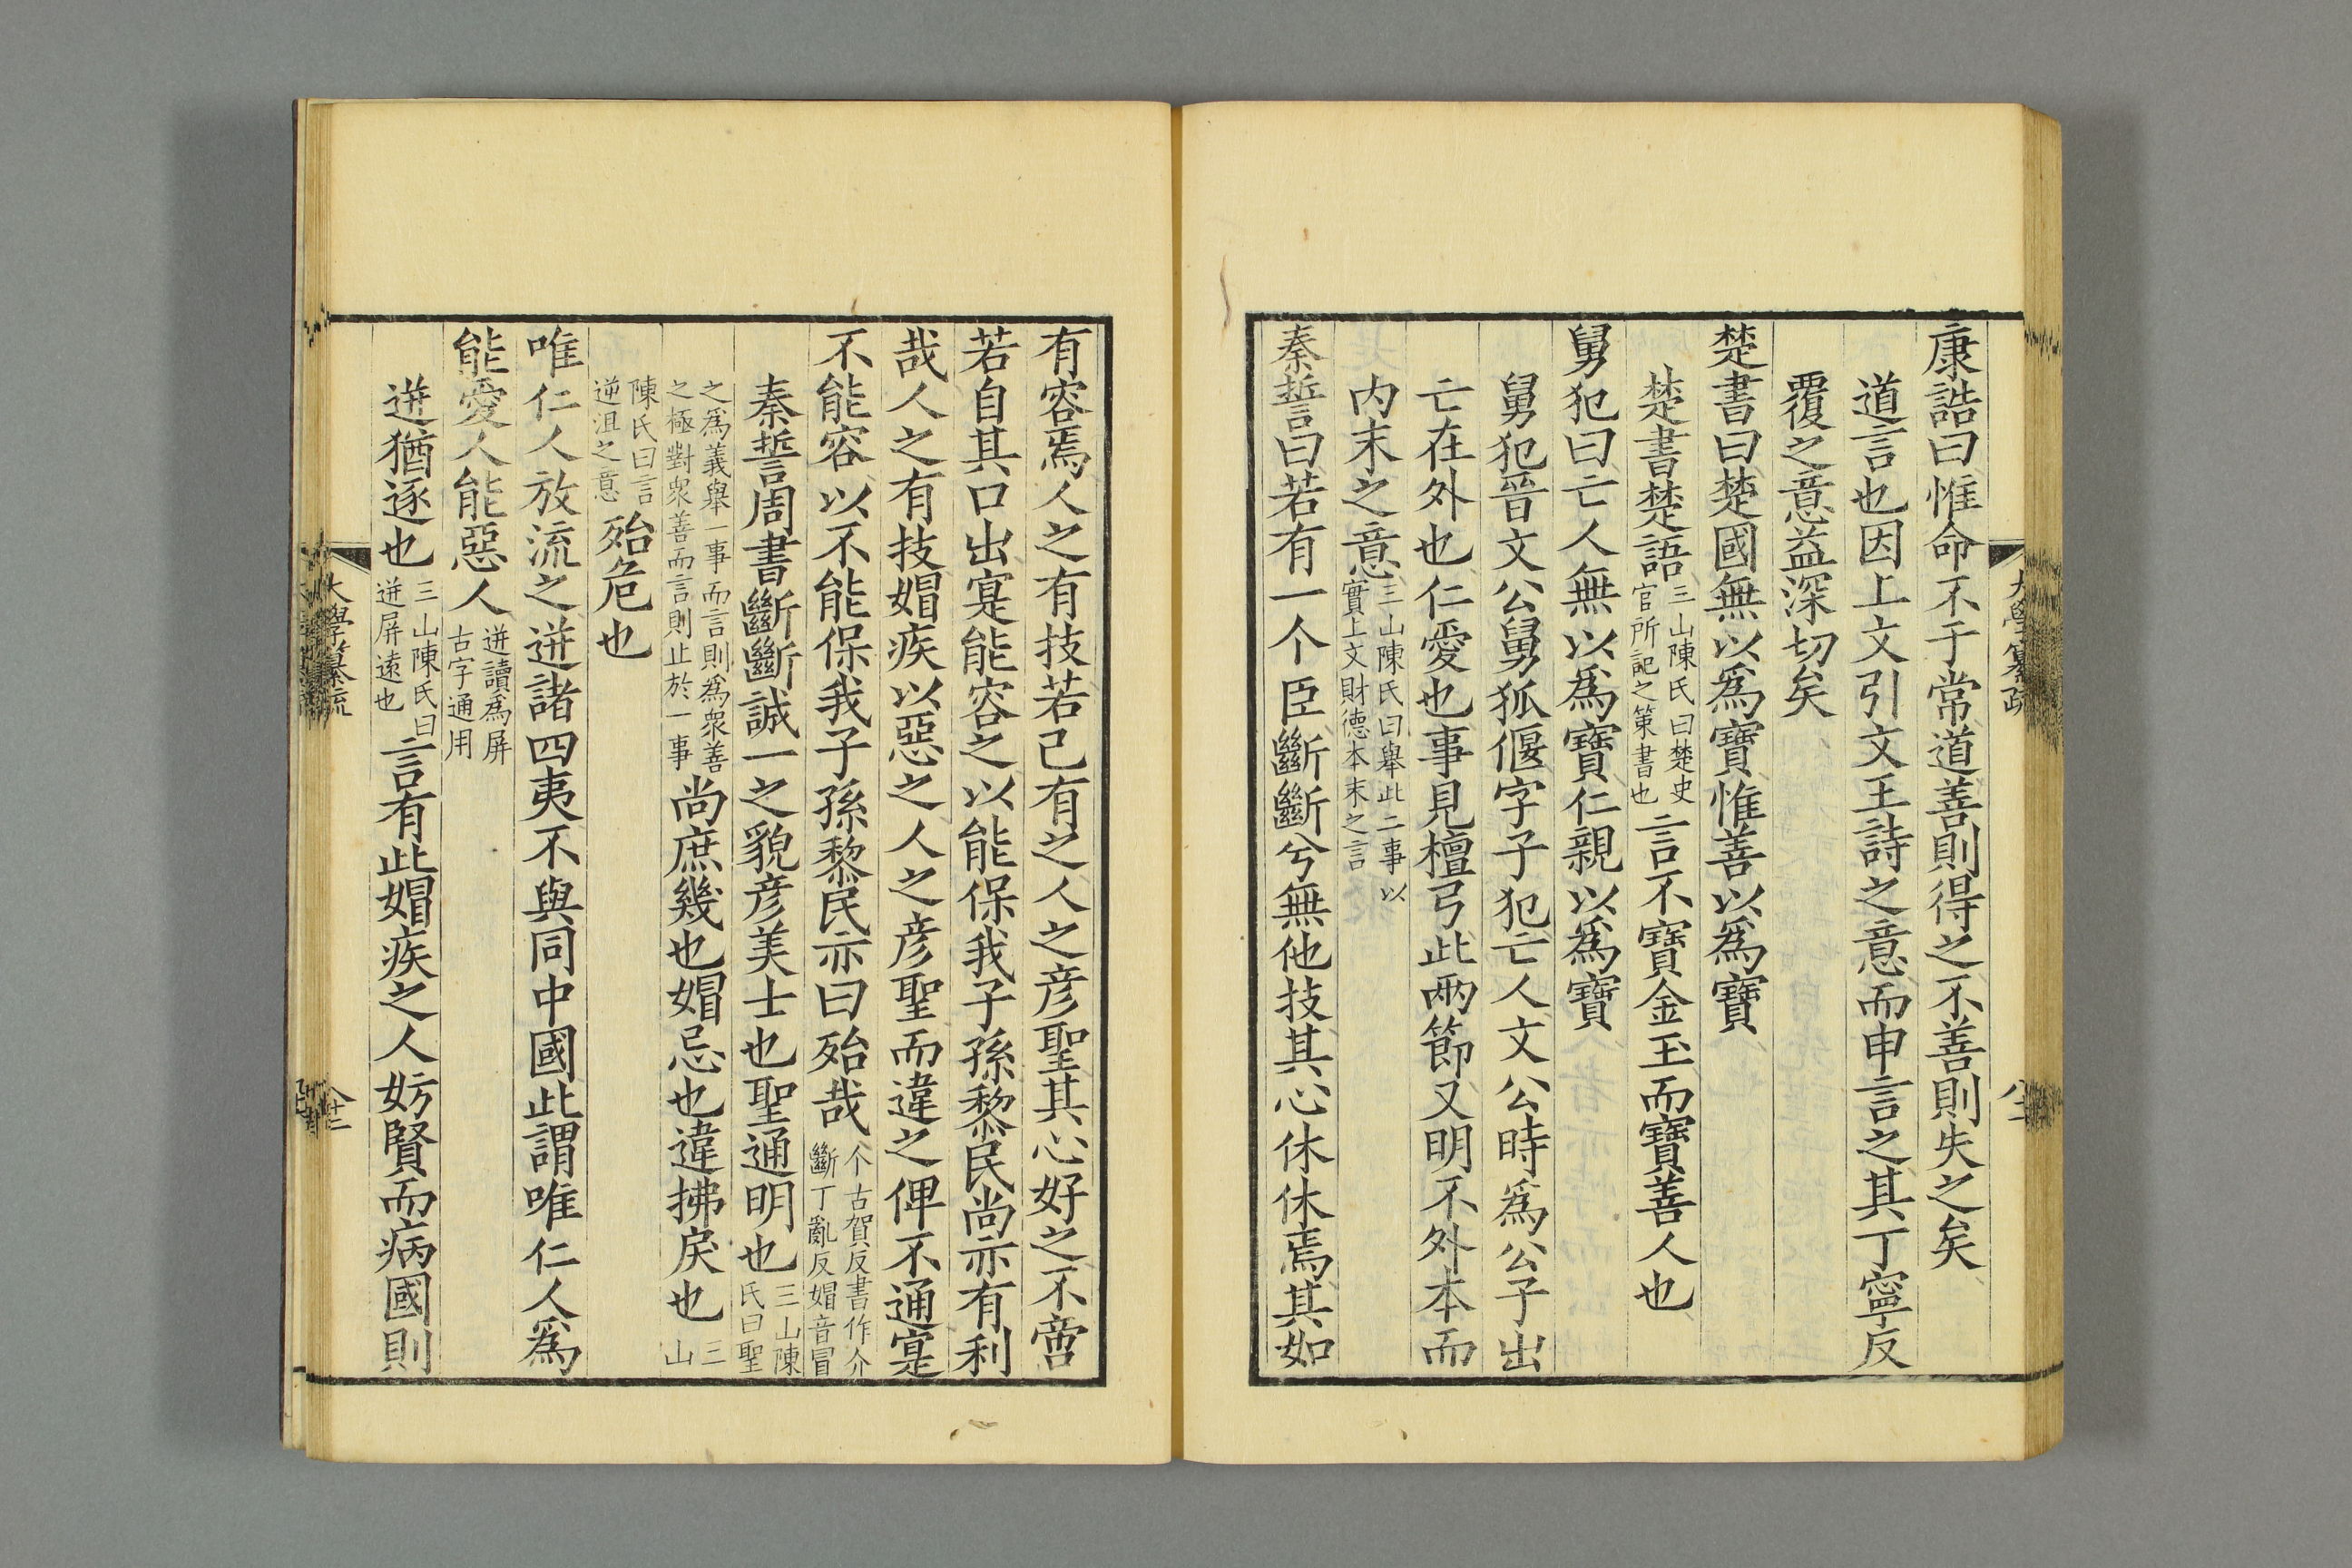 康誥曰惟命不于常道善則得之不善則失之矣
道言也因上文引文王詩之意而申言之其丁寧反
覆之意益深切矣
楚書曰楚國無以爲寶惟善以爲寶
楚書楚語三山陳氏曰楚史官所記之策書也言不寶金玉而寶善人也
舅犯曰亡人無以爲寶仁親以爲寶
舅犯晉文公舅狐偃字子犯亡人文公時爲公子出
亡在外也仁愛也事見檀弓此兩節又明不外本而
内末之意三山陳氏曰舉此二事以實上文財德本末之言
秦誓曰若有一个臣斷斷兮無他技其心休休焉其如
有容焉人之有技若己有之人之彦聖其心好之不啻
若自其口出寔能容之以能保我子孫黎民尚亦有利
哉人之有技媢疾以惡之人之彦聖而違之俾不通寔
不能容以不能保我子孫黎民亦曰殆哉个古賀反書作介斷丁亂反媢音冒
秦誓周書斷斷誠一之貌彦美士也聖通明也三山陳氏曰聖
之爲義舉一事而言則爲衆善之極對衆善而言則止於一事尚庶幾也媢忌也違拂戾也三山
陳氏曰言逆沮之意殆危也
唯仁人放流之迸諸四夷不與同中國此謂唯仁人爲
能愛人能惡人迸讀爲屏古字通用
迸猶逐也三山陳氏曰迸屏遠也言有此媢疾之人妨賢而病國則
大學纂疏